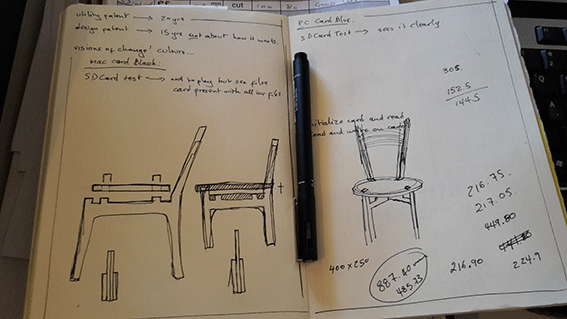 utility patent → 20 yrs
design patent → 15 yrs not about how it works.
visions of change! culture...
mac card Black:
SD Card test → not to play but see files.
card present with all inv files
PC Card Blue:
SD Card Test → sees it clearly.
305.
152.5
144.5
initialize card and read
read and write on card
216.75.
217.05
449.80
400 x 250
887.80
485.73
216.90
224.9